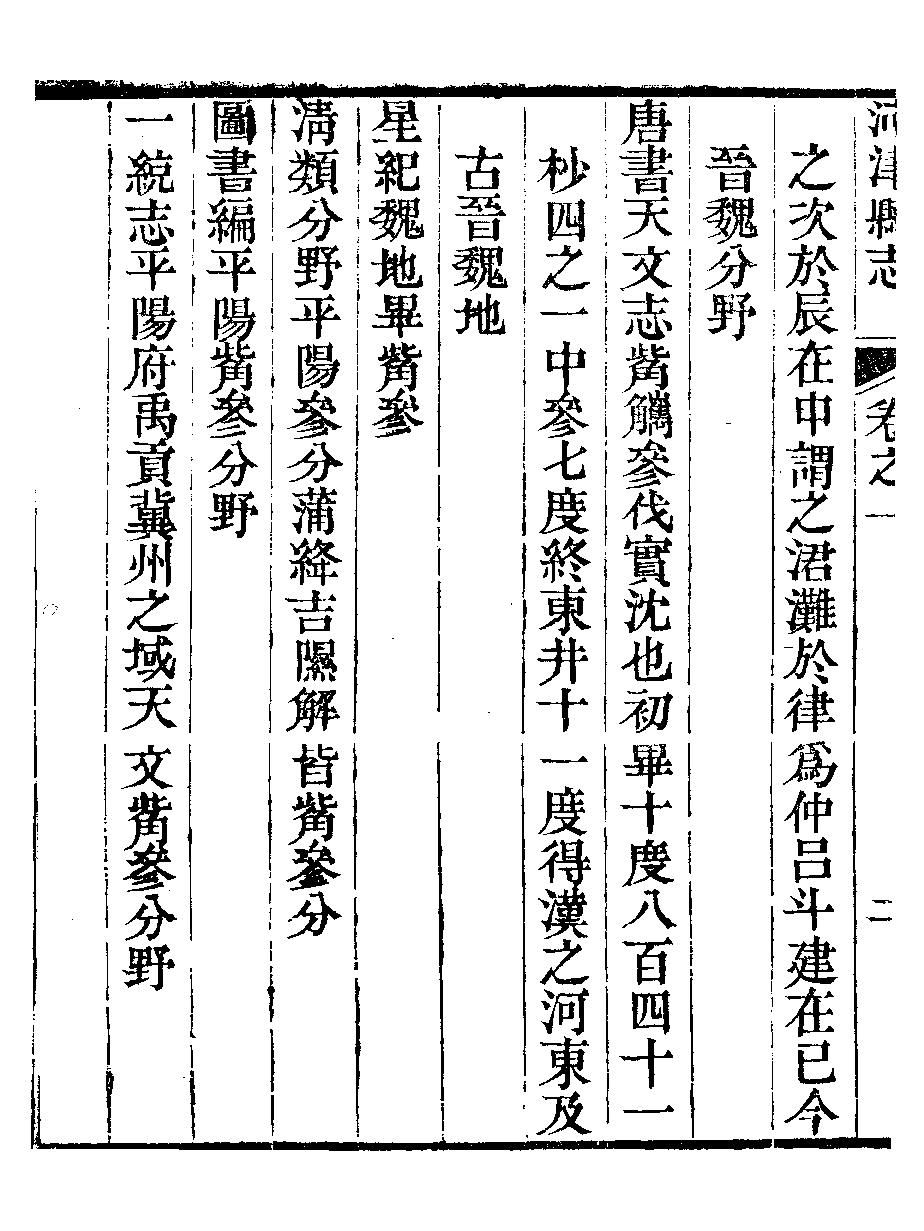 河津縣志 卷之一 二
之次於辰在申謂之涒灘於律爲仲呂斗建在巳今
晉魏分野
唐書天文志觜觿參伐實沈也初畢十度八百四十一
杪四之一中參七度終東井十一度得漢之河東及
古晉魏地
星紀魏地畢觜參
清類分野平陽參分蒲絳吉隰解皆觜參分
圖書編平陽觜參分野
一統志平陽府禹貢冀州之域天文觜參分野